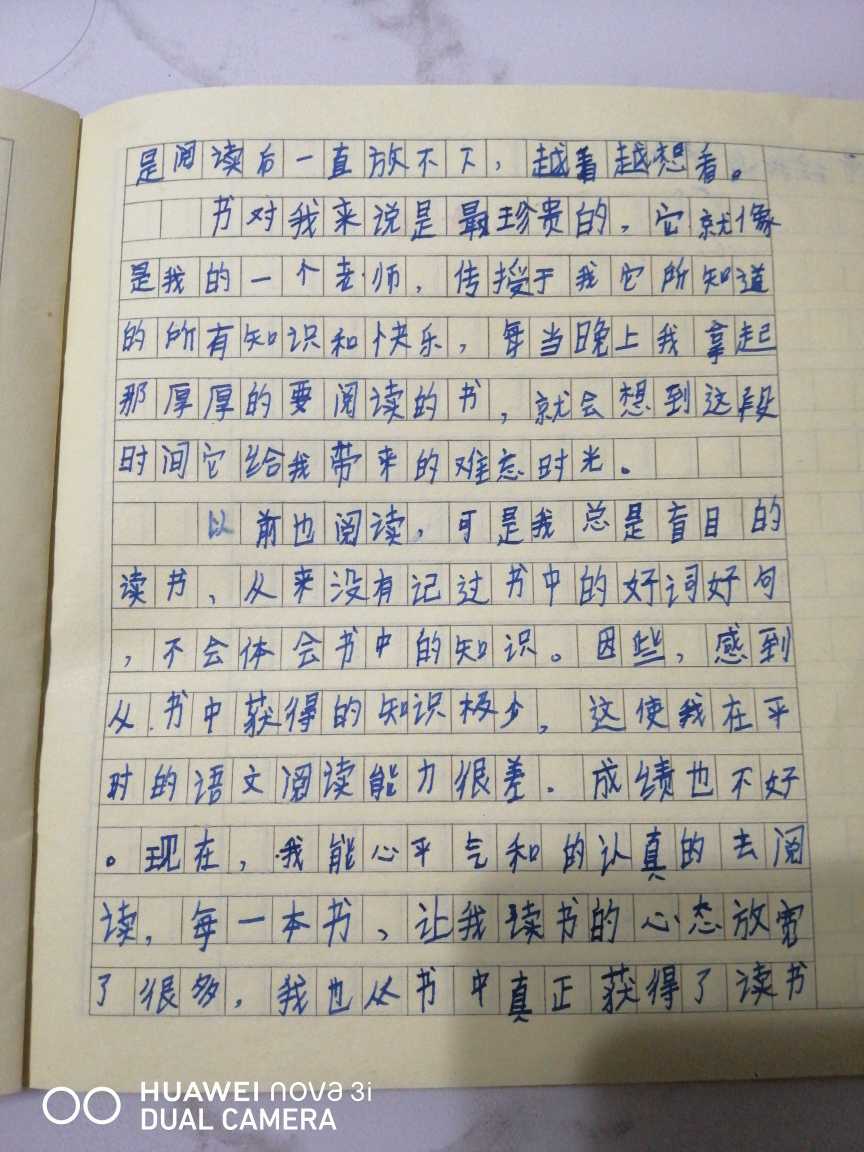 是阅读后一直放不下，越看越想看。
书对我来说是最珍贵的，它就像
是我的一个老师，传授于我它所知道
的所有知识和快乐，每当晚上我拿起
那厚厚的要阅读的书，就会想到这段
时间它给我带来的难忘时光。
以前也阅读，可是我总是盲目的
读书、从来没有记过书中的好词好句
，不会体会书中的知识。因些，感到
从书中获得的知识极少，这使我在平
时的语文阅读能力很差．成绩也不好
。现在，我能心平气和的认真的去阅
读，每一本书、让我读书的心态放宽
了很多，我也从书中真正获得了读书
HUAWEI nova 3i
DUAL CAMERA